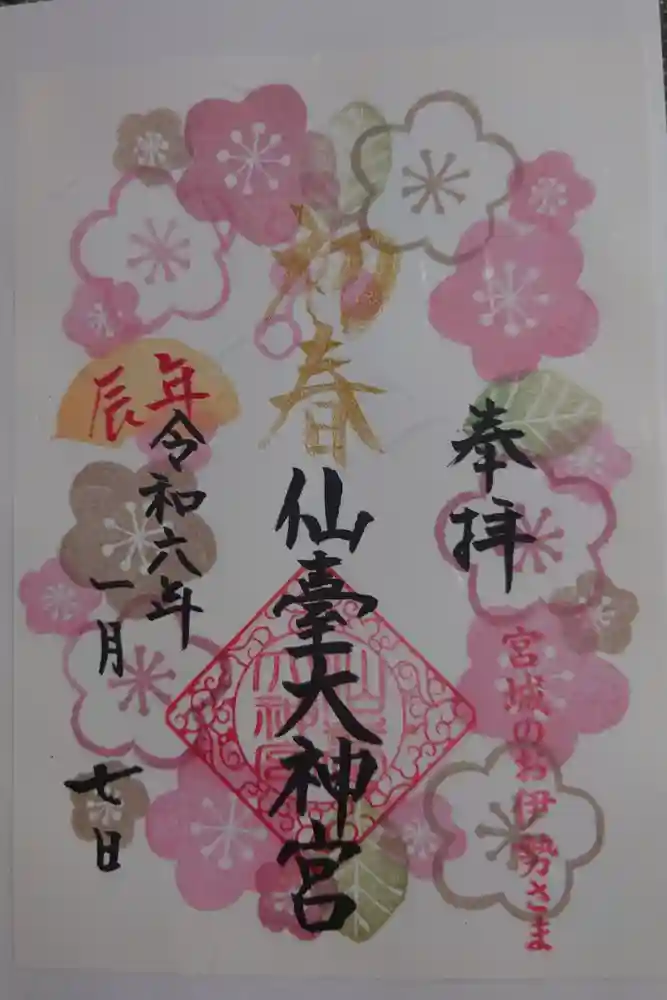 奉拝
宮城のお伊勢さま
初春
仙臺大神宮
辰年
令和六年
一月
七日